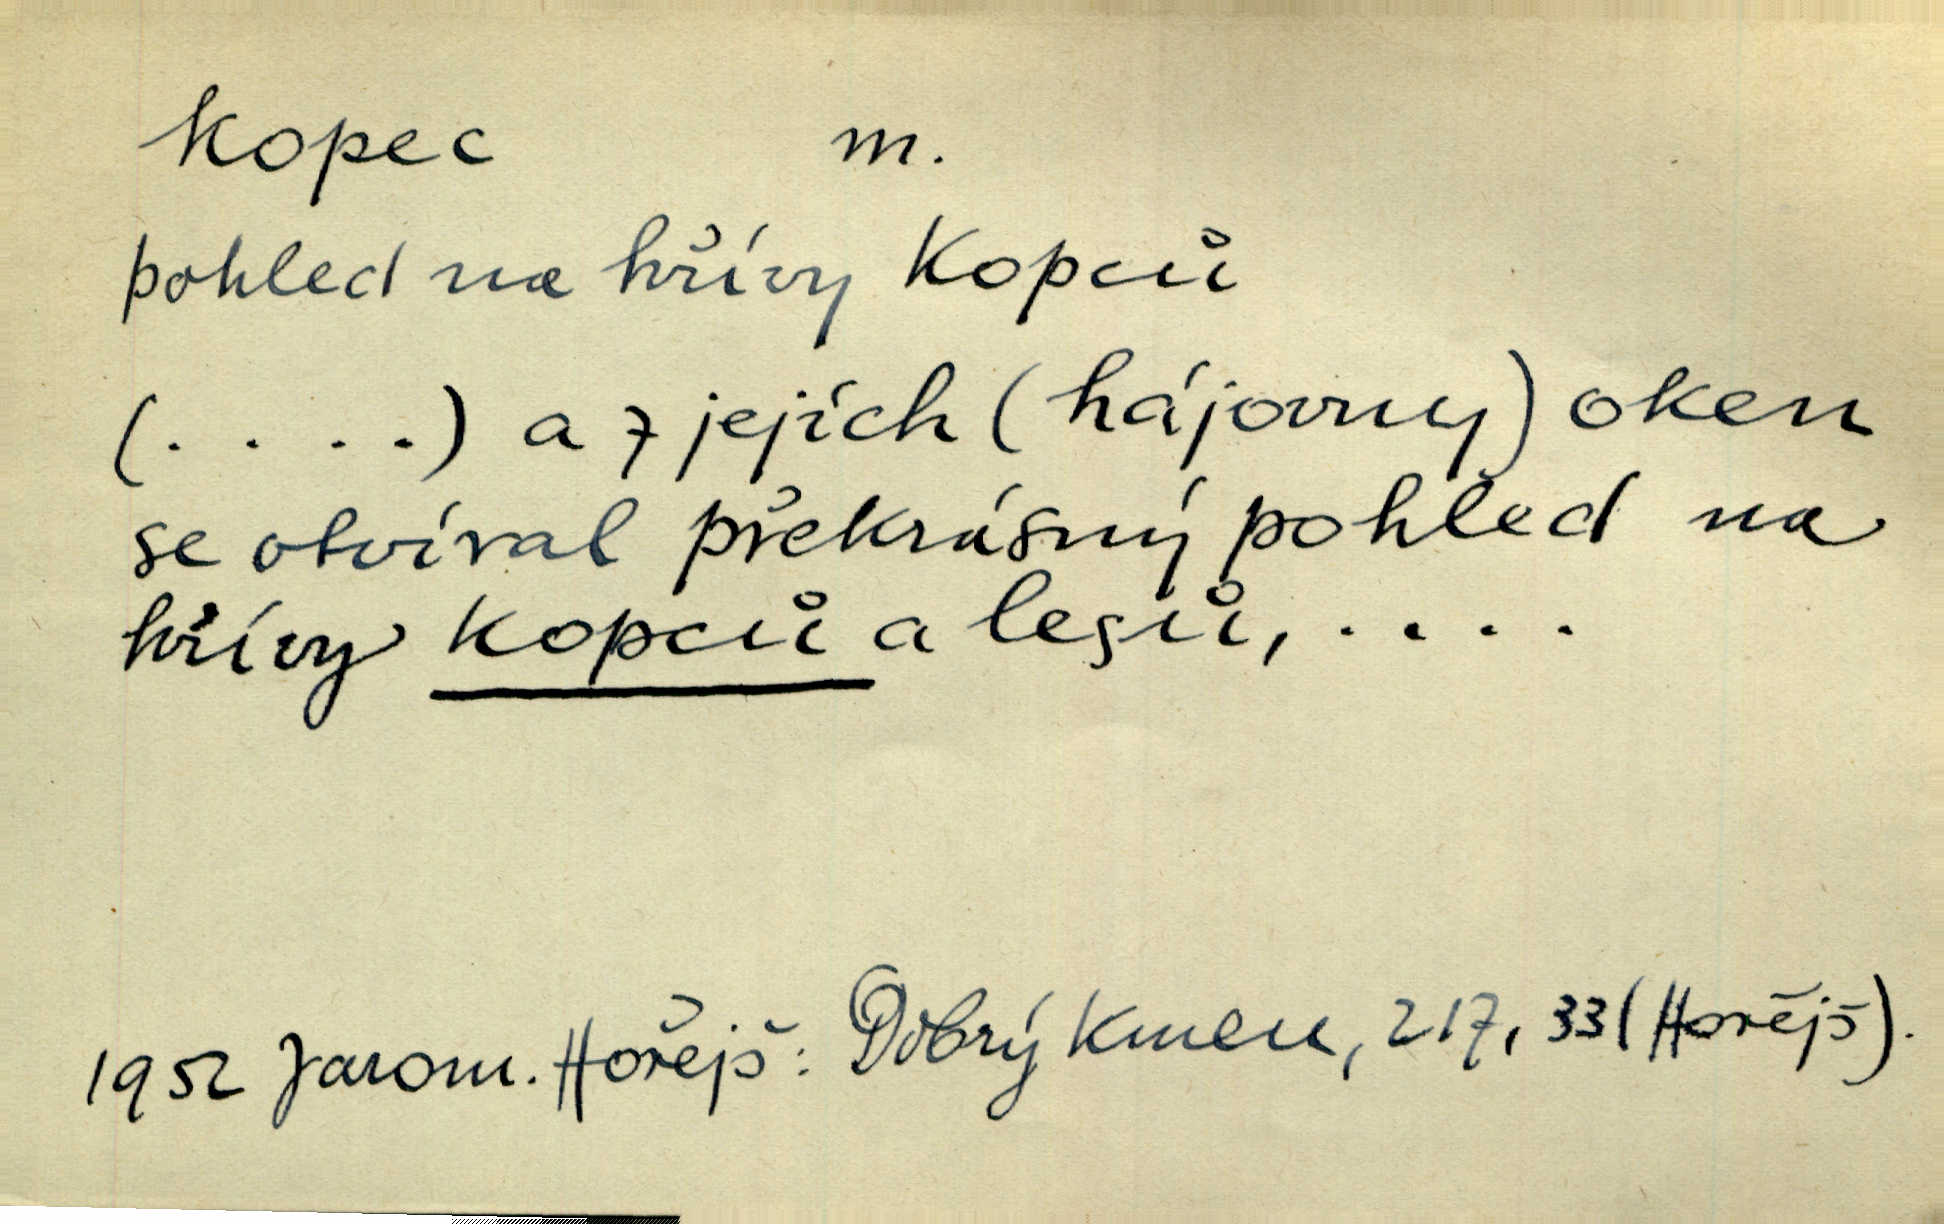 kopec m.
pohled na hřívy kopců
(. . . .) a z jejích (hájovny) oken
se otvíral překrásný pohled na
hřívy kopců a lesů, . . . .
1952 Jarom. Hořejš: Dobrý kmen, 217, 33 (Hořejš).